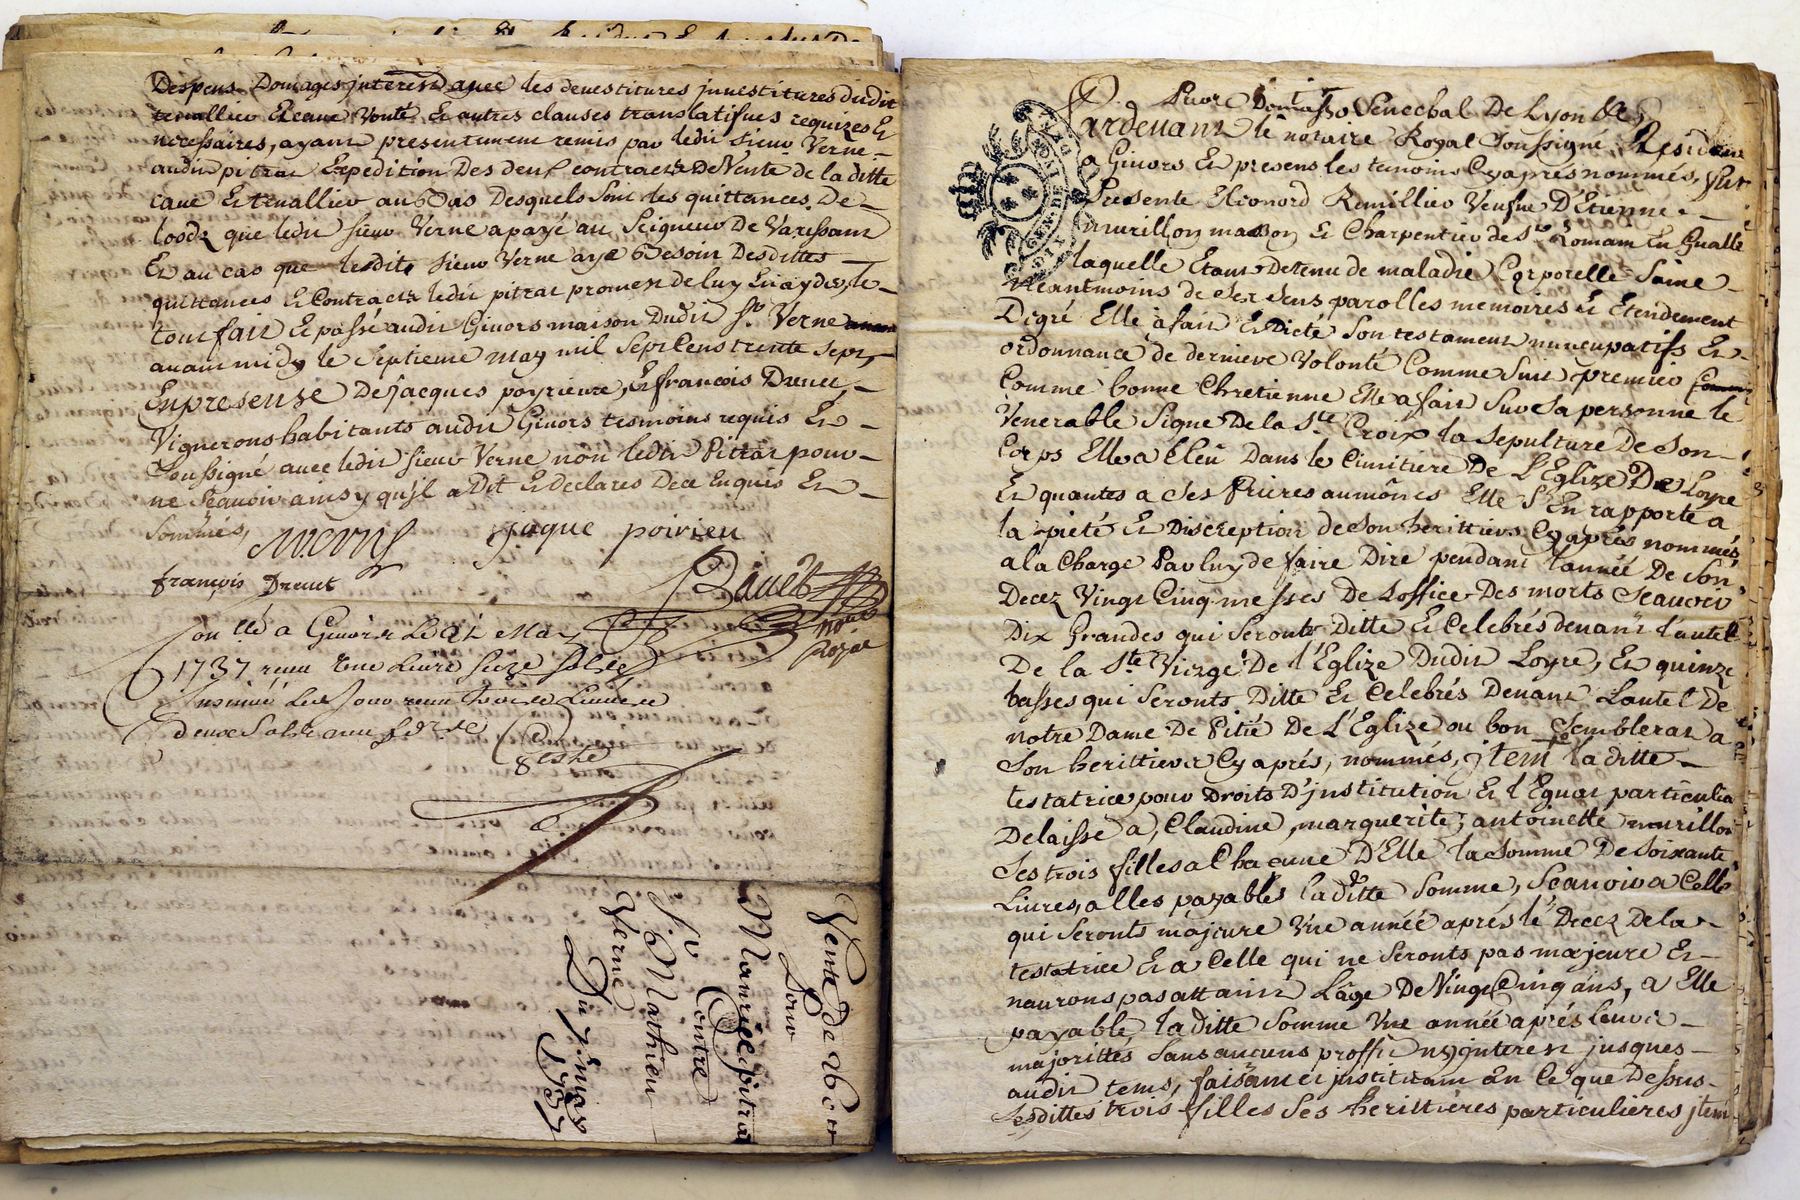 Despens Domages interest avec les devestitures investitures dudit
tenallier Et cave Vente Et autres clauses translatifves requizes Et
necessaires, ayant presentement remis par ledit Sieur Verne
audit pitrat Expedition Des deux contracts De Vente de la ditte
cave Et tenallier au bas Desquels sont les quittances De
loods que ledit sieur Verne a payé au Seigneur De Varissant
Et au cas que lesdite sieur Verne aye Besoin Desdittes
quittances Et Contracts ledit pitrat promet de luy En ayder, le
tout fait Et passé audit Givors maison Dudit Sr. Verne
avant midy le Septieme may mil Sept Cens trente sept,
En presense De jacques poyrieure, Et francois Drevet
Vignerons habitants audit Givors tesmoins requis Et
Soussigné avec ledit sieur Verne non ledit Pitrat pour
ne Scavoir ainsy qu'jl a Dit Et declares De ce Enquis Et
Sommés,
jaque poirieu
françois Drevet
nore
Royal
Conllé a Givors Le May
1737 reçu livre seize sols
Insinué Les Jour reçu
deux sols
Vente de
Pour
Maurice pitra
Contre
Sr. Mathieu
Verne
Du 7 may
1737
Par Devant Senechal De Lyon &
Pardevant le notaire Royal Soussigné, Residant
a Givors Et presens les temoins Cy aprés nommés, fut
Presente Eléonord Remillier Veufve D'Etienne
murillon masson Et Charpentier de Ste Romain En Gualle
laquelle Etant Detenu de maladie Corporelle Saine
Neantmoins de Ses Sens parolles memoires Et Etendement
Degré Elle a fait Et Dicté Son testament nuncupatifs Et
ordonnance de derniere Volonté Comme Suit premier
Comme bonne Chretienne Elle a fait Sur Sa personne le
Venerable Signe De la Ste Croix la Sepulture De Son
Corps Elle a Eleu Dans le Cimitiere De L'Eglize De Loyre
Et quantes a Ses Prieres aumônes Elle S'En rapporte a
la pieté Et Discreption de Son herittiers Cy aprés nommés
a la Charge Par luy de faire Dire pendant l'année De Son
Decez Vingt Cinq messes De Loffice Des morts Scavoir
Dix Grandes qui Seronts Ditte Et Celebrés devant l'autel
De la Ste Vierge De l'Eglize Dudit Loyre, Et quinze
basses qui Seronts Ditte Et Celebrés Devant Lautel De
notre Dame De Pitié De L'Eglize ou bon Semblerat a
Son herittier Cy aprés, nommés, jtem la ditte
testatrice pour Droits D'justitution Et l'Eguat particulier
Delaisse a, Claudine, marguerite, antoinette murillon
Ses trois filles a Chacune D'Elle la Somme De Soixante
Livres, a lles payables la ditte Somme, Scavoir a Celle
qui Seronts majeure Vne année aprés le Decez De la
testatrice Et a Celle qui ne Seronts pas majeure Et
n'aurons pas attaint L'age De Vingt Cinq ans, a Elle
payable la ditte Somme Vne année aprés leurs
majorittés Sans aucuns proffit ny jnterest jusques
audit tems, faisant Et justituant En Ce que Dessus
Sesdittes trois filles Ses herittiéres particulieres jtem